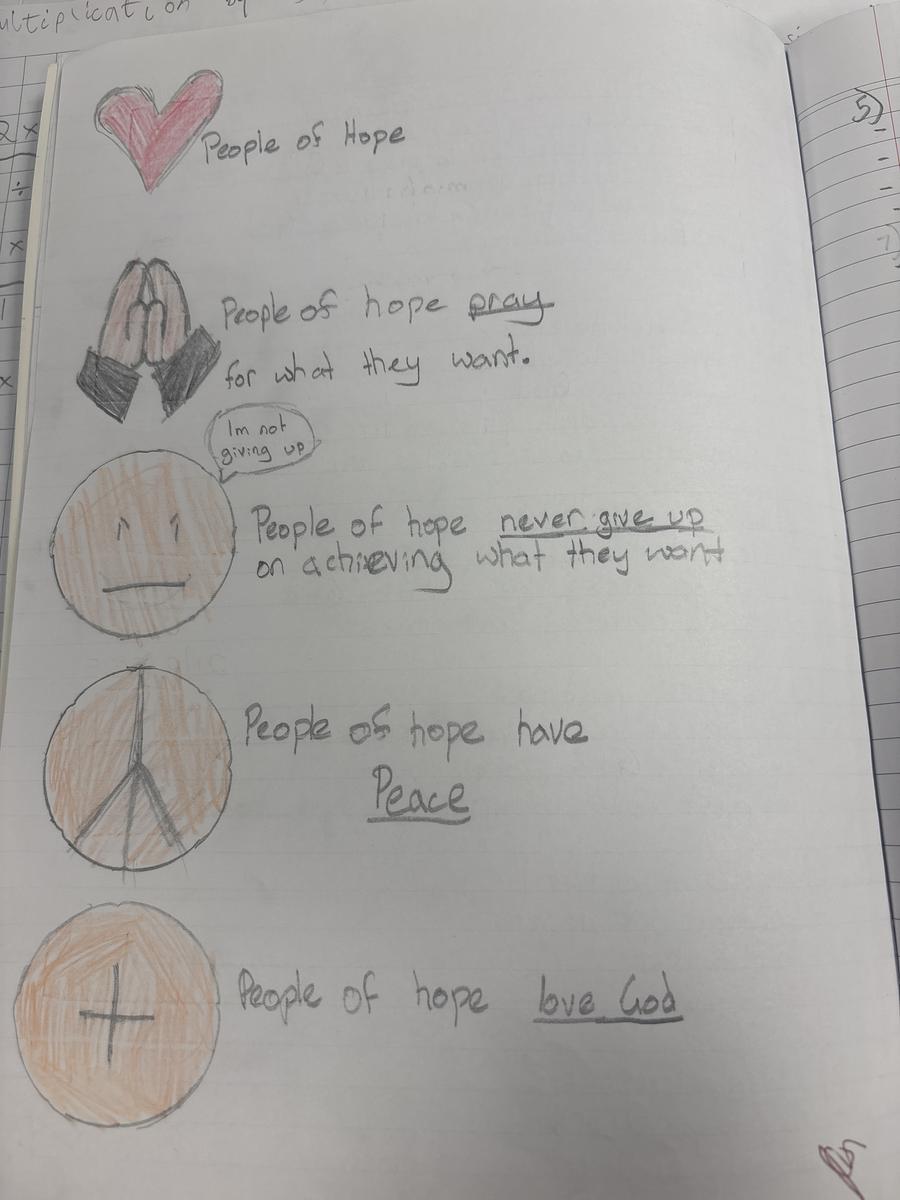 multiplication
People of Hope
People of hope pray
for what they want.
Im not
giving up
People of hope never give up
on achieving what they want
People of hope have
Peace
People of hope love God
5)